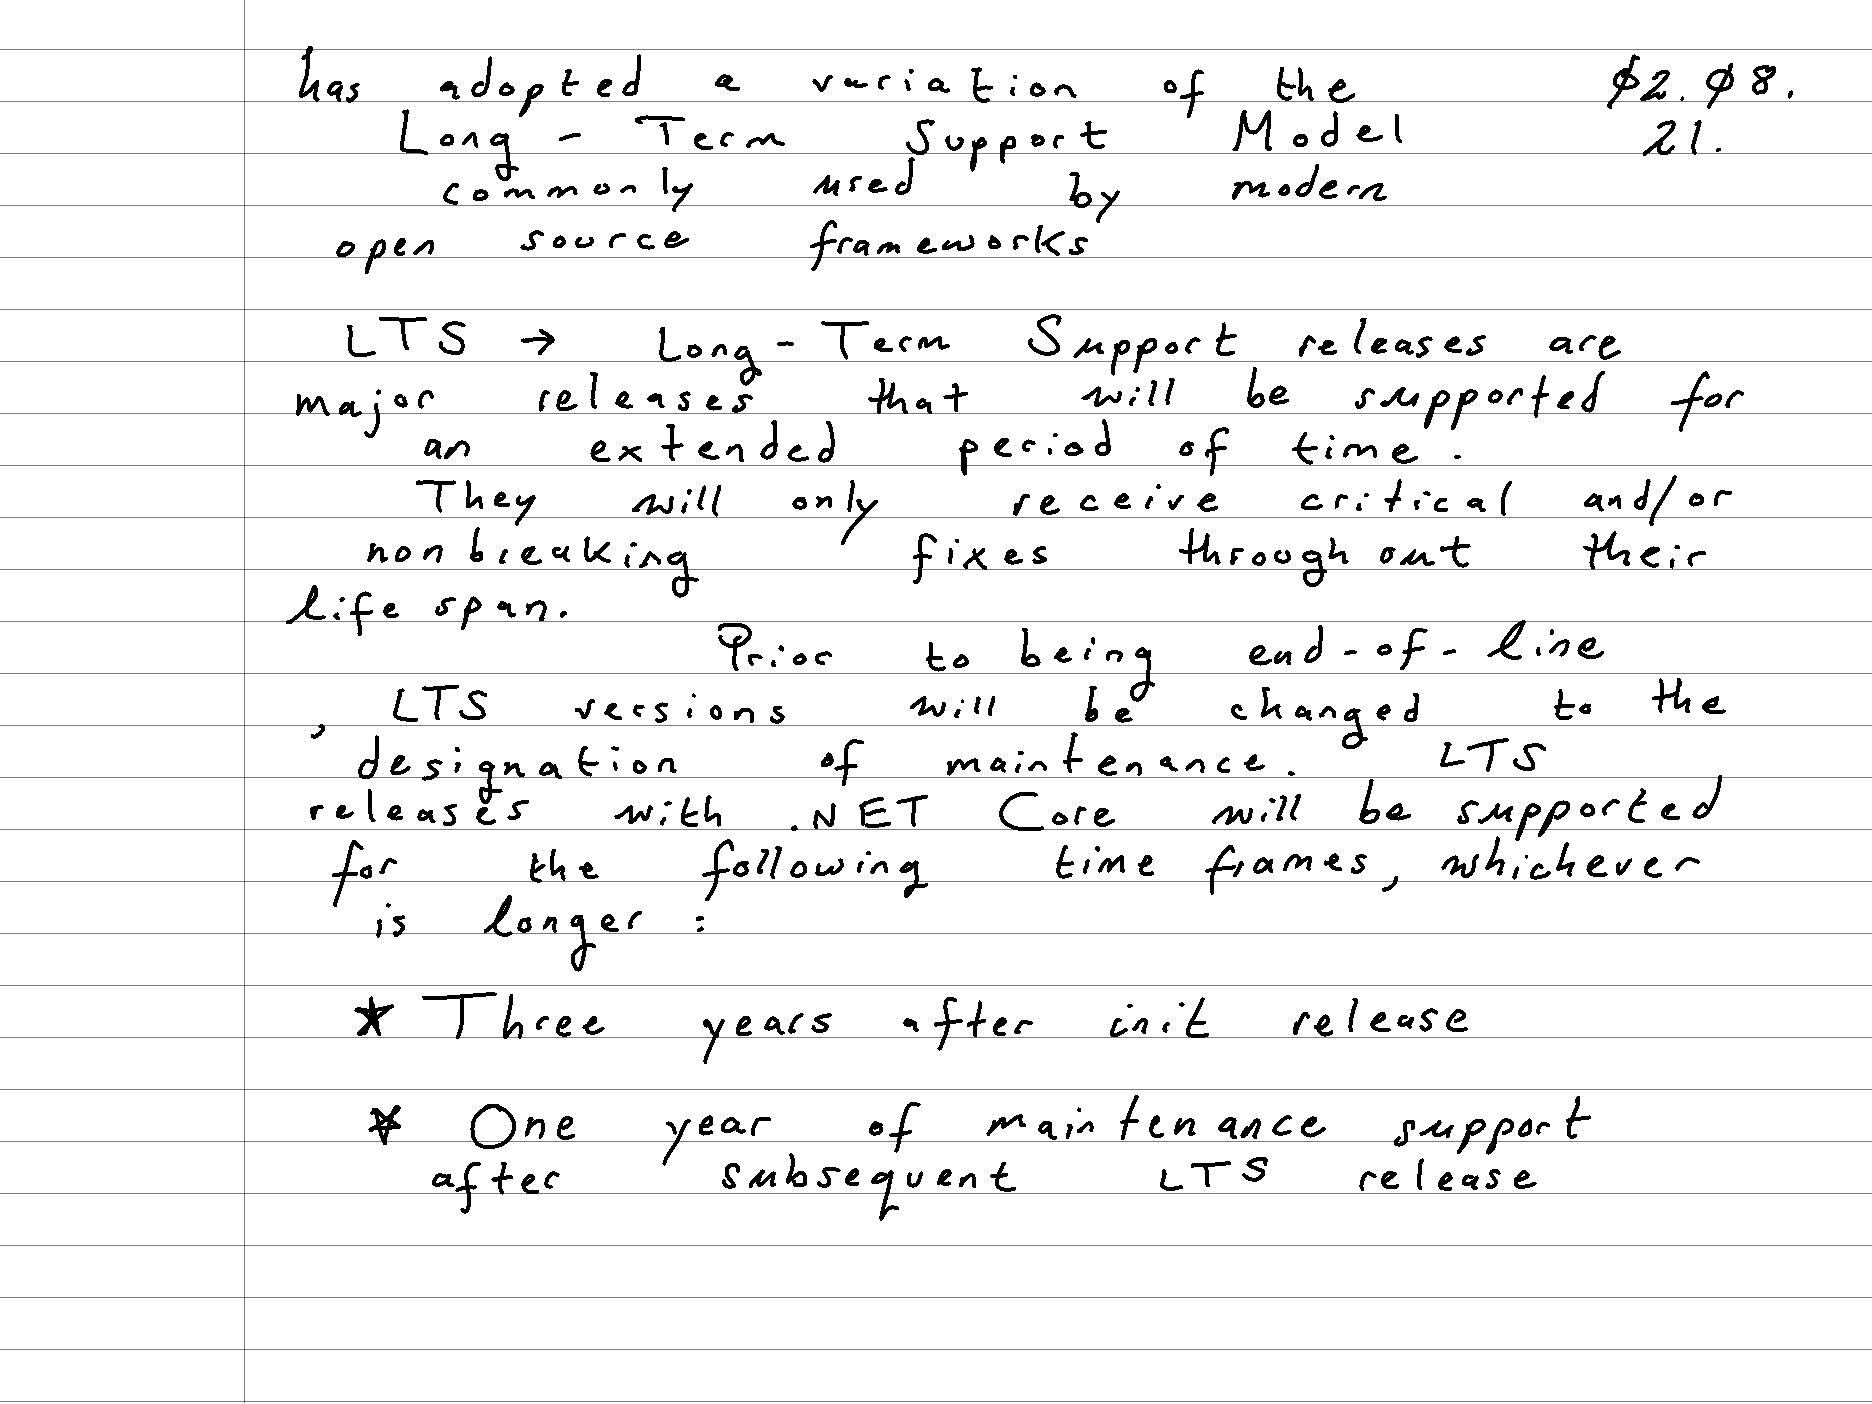 has adopted a variation of the
Long - Term Support Model
commonly used by modern
open source frameworks
Ø2. Ø8.
21.
LTS → Long - Term Support releases are
major releases that will be supported for
an extended period of time.
They will only receive critical and/or
nonbreaking fixes throughout their
life span.
Prior to being end-of-line
, LTS versions will be changed to the
designation of maintenance. LTS
releases with .NET Core will be supported
for the following time frames, whichever
is longer :
* Three years after init release
* One year of maintenance support
after subsequent LTS release